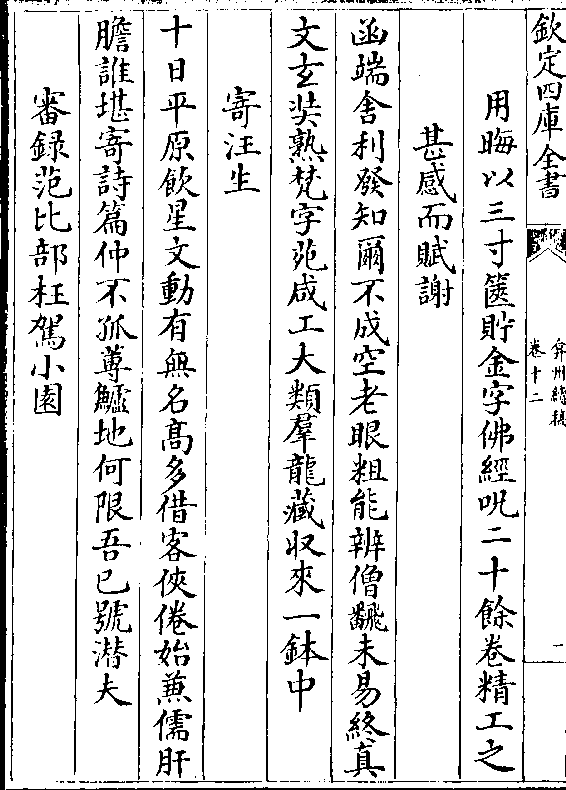 欽定四庫全書
弇州續稿
卷十二
二
用晦以三寸篋貯金字佛經呪二十餘卷精工之
甚感而賦謝
函端舍利發知爾不成空老眼粗能辨僧飜未易終真
文玄奘熟梵字苑咸工大類羣龍藏収來一鉢中
寄汪生
十日平原飲星文動有無名髙多借客俠倦始兼儒肝
膽誰堪寄詩篇仲不孤蓴鱸地何限吾已號潛夫
審録范比部枉駕小園